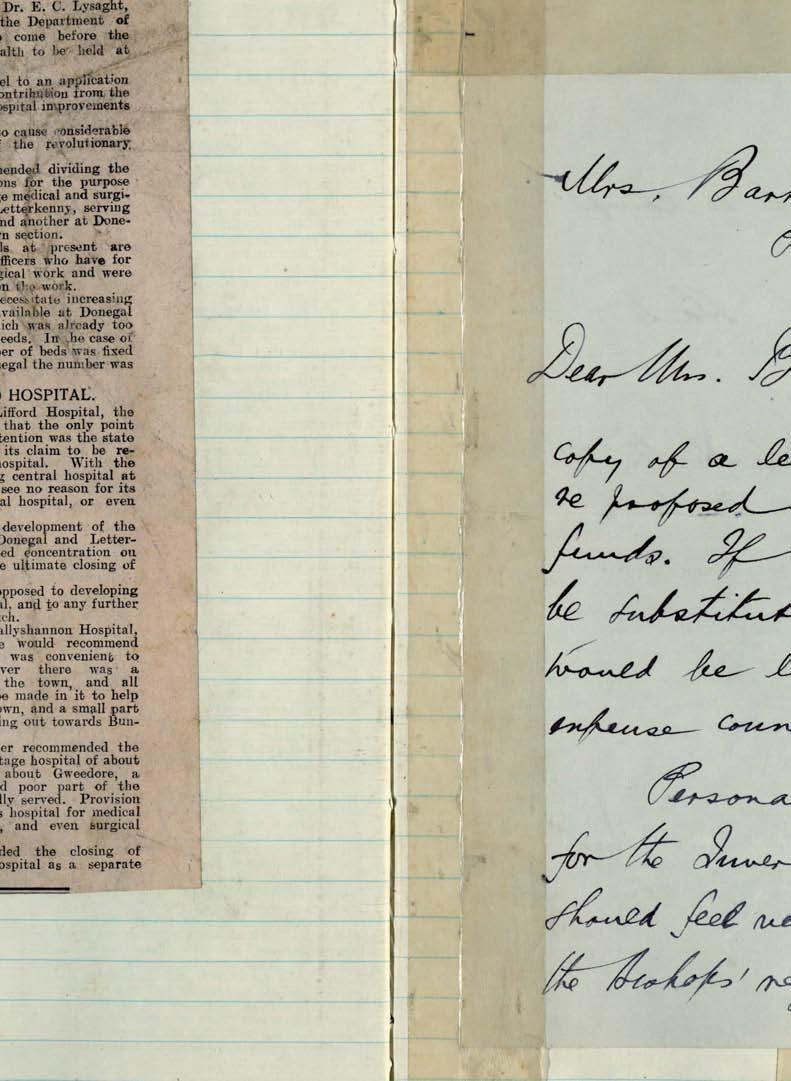 Dr. E. C. Lysaght,
the Department of
come before the
alth to be held at
el to an application
ontribution from the
ospital improvements
o cause considerable
the revolutionary
ended dividing the
ons for the purpose
e medical and surgi-
etterkenny, serving
nd another at Done-
n section.
ls at present are
fficers who have for
gical work and were
n the work.
ecessitate increasing
vailable at Donegal
ich was already too
eeds. In the case of
er of beds was fixed
egal the number was
HOSPITAL.
ifford Hospital, the
that the only point
tention was the state
its claim to be re-
ospital. With the
g central hospital at
see no reason for its
al hospital, or even
development of the
Donegal and Letter-
ed concentration on
e ultimate closing of
opposed to developing
al, and to any further
ch.
allyshannon Hospital,
e would recommend
was convenient to
ver there was a
the town, and all
e made in it to help
own, and a small part
ing out towards Bun-
er recommended the
tage hospital of about
about Gweedore, a
d poor part of the
lly served. Provision
s hospital for medical
, and even surgical
ded the closing of
ospital as a separate
Mrs. Barr
Dear Mrs. B
copy of a le
re proposed
funds. If
be substitut
would be l
expense coun
Persona
for the Inver
should feel ve
the Bishops' re